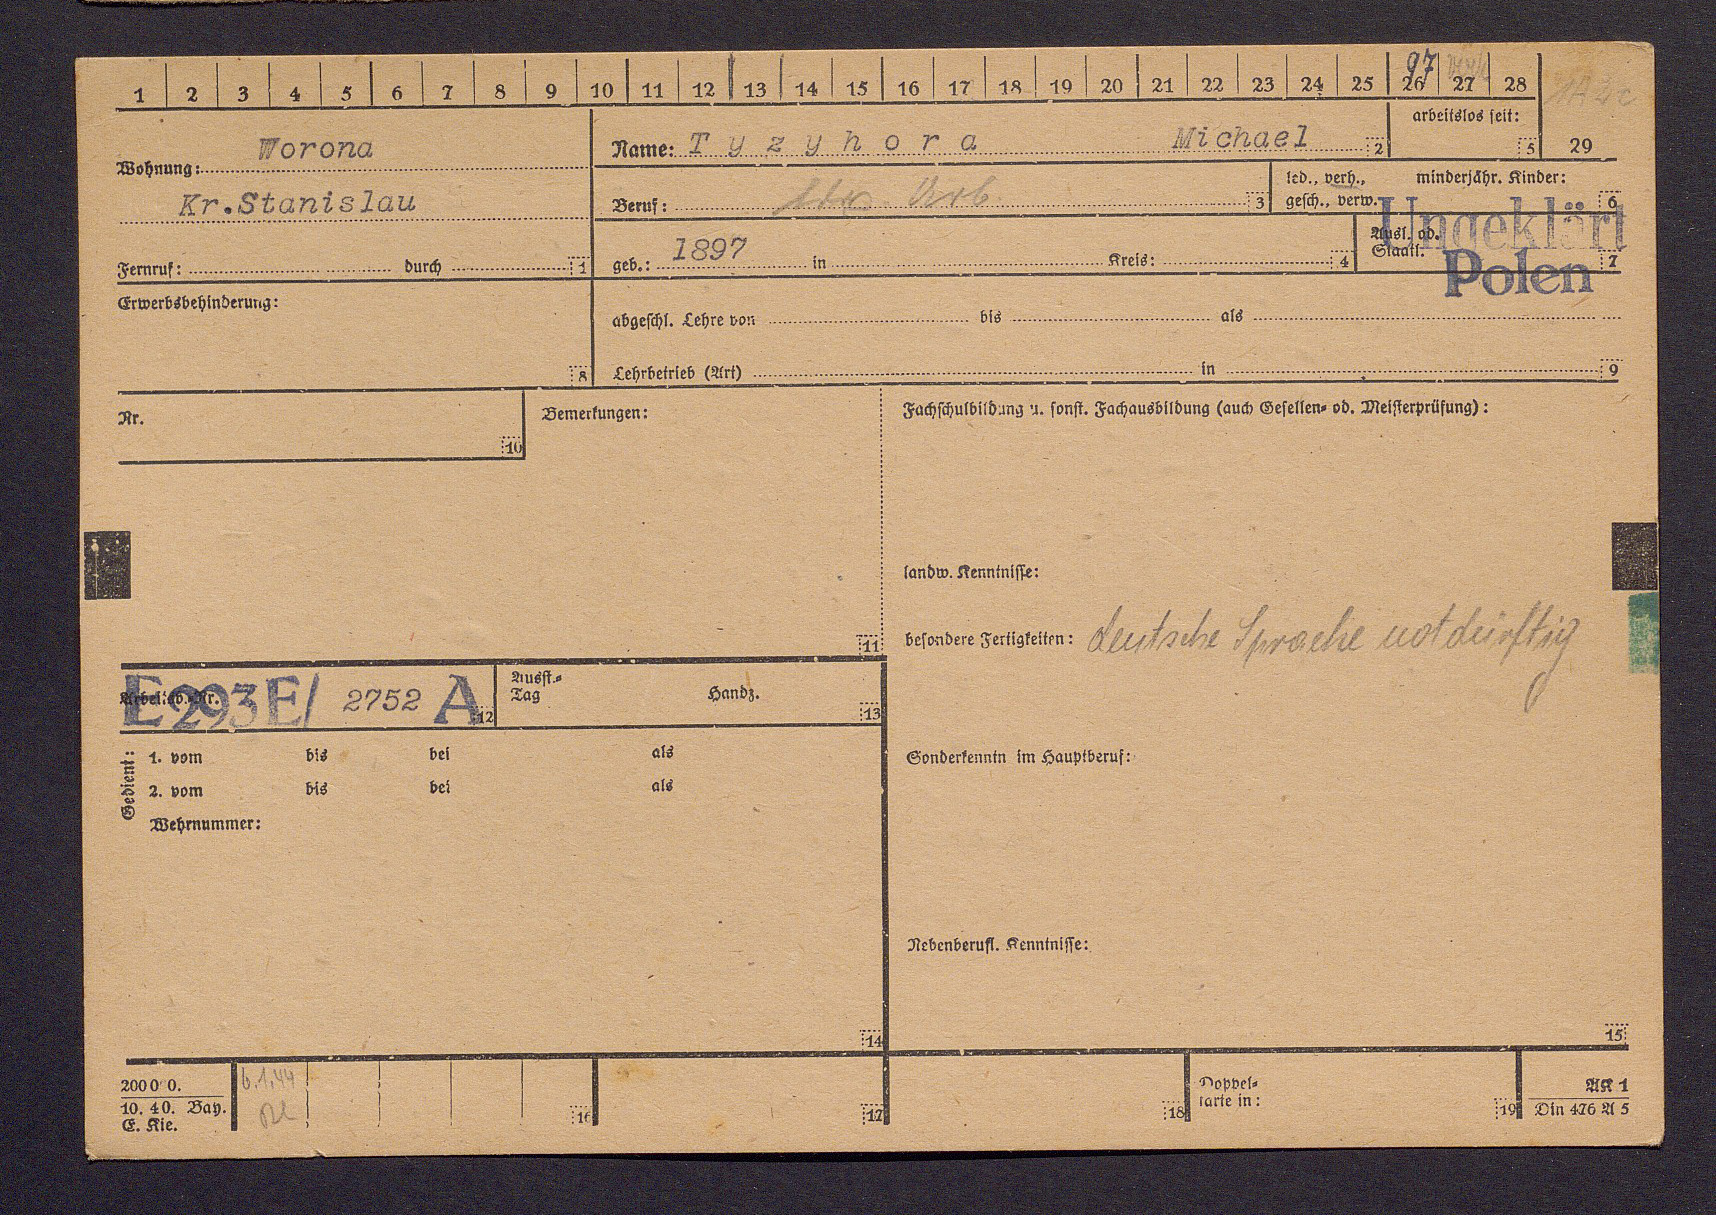 97
1 2 3 4 5 6 7 8 9 10 11 12 13 14 15 16 17 18 19 20 21 22 23 24 25 26 27 28
Wohnung: Worona
Kr.Stanislau
Fernruf: durch 1
Name: Tyzyhora Michael 2
arbeitslos seit: 5
29
Beruf: Arb. 3
led., verh., gesch., verw.
minderjähr. Kinder: 6
geb.: 1897 in Kreis: 4
Ausl. od. Staatl. 7
Ungeklärt
Polen
Erwerbsbehinderung: 8
abgeschl. Lehre von bis als
Lehrbetrieb (Art) in 9
Nr. 10
Bemerkungen: 11
Fachschulbildung u. sonst. Fachausbildung (auch Gesellen- od. Meisterprüfung):
landw. Kenntnisse:
besondere Fertigkeiten: deutsche Sprache notdürftig
Arbeitsb.-Nr. E293E/ 2752 A 12
Ausst.-Tag Handz. 13
Gedient:
1. vom bis bei als
2. vom bis bei als
Wehrnummer:
14
Sonderkenntn im Hauptberuf:
Nebenberufl. Kenntnisse:
15
20000.
10. 40. Bay.
E. Kie.
6.1.44
16
17
18
Doppel-
karte in: 19
AK 1
Din 476 A 5